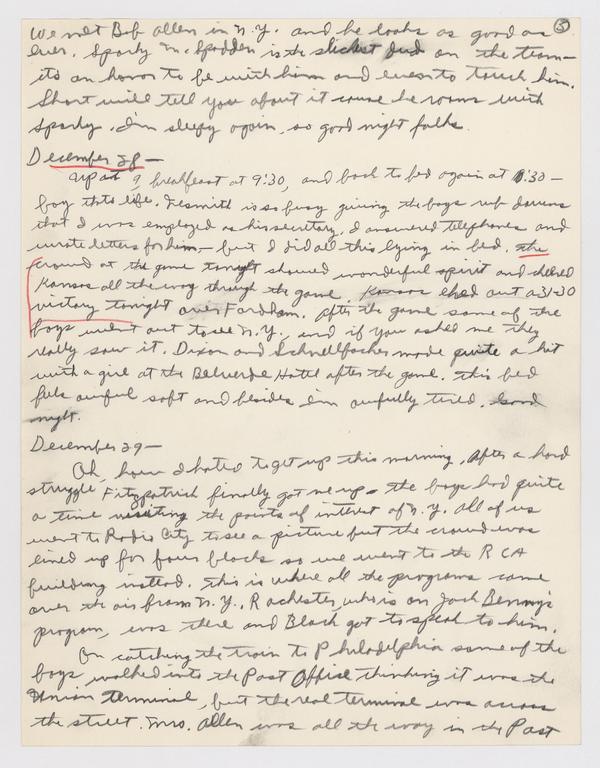 (5)
We met Bob Allen in N.Y. and he looks as good as
ever. Sparky McSpadden is the slickest dud on the team—
its an honor to be with him and even to touch him.
Short will tell you about it cause he rooms with
Sparky. I'm sleepy again, so good night folks.
December 28 —
Up at 9, breakfast at 9:30, and back to bed again at 10:30 —
boy thats life. Nesmith is so busy giving the boys rub downs
that I was employed as his secretary. I answered telephones and
wrote letters for him— but I did all this lying in bed. The
crowd at the game tonight showed wonderful spirit and cheered
Kansas all the way through the game. Kansas eked out a 31-30
victory tonight over Fordham. After the game some of the
boys went out to see N.Y., and if you asked me they
really saw it. Dixon and Schnellbacher made quite a hit
with a girl at the Belverde Hotel after the game. This bed
feels awful soft and besides I'm awfully tired. Good
night.
December 29 —
Oh, how I hated to get up this morning. After a hard
struggle Fitzpatrick finally got me up. The boys had quite
a time visiting the points of interest of N.Y. All of us
went to Radio City to see a picture but the crowd was
lined up for four blocks so we went to the RCA
building instead. This is where all the programs come
over the air from N.Y. Rochester, who is on Jack Benny's
program, was there and Black got to speak to him.
On catching the train to Philadelphia some of the
boys walked into the Post Office thinking it was the
Union terminal, but the real terminal was across
the street. Mrs. Allen was all the way in the Post